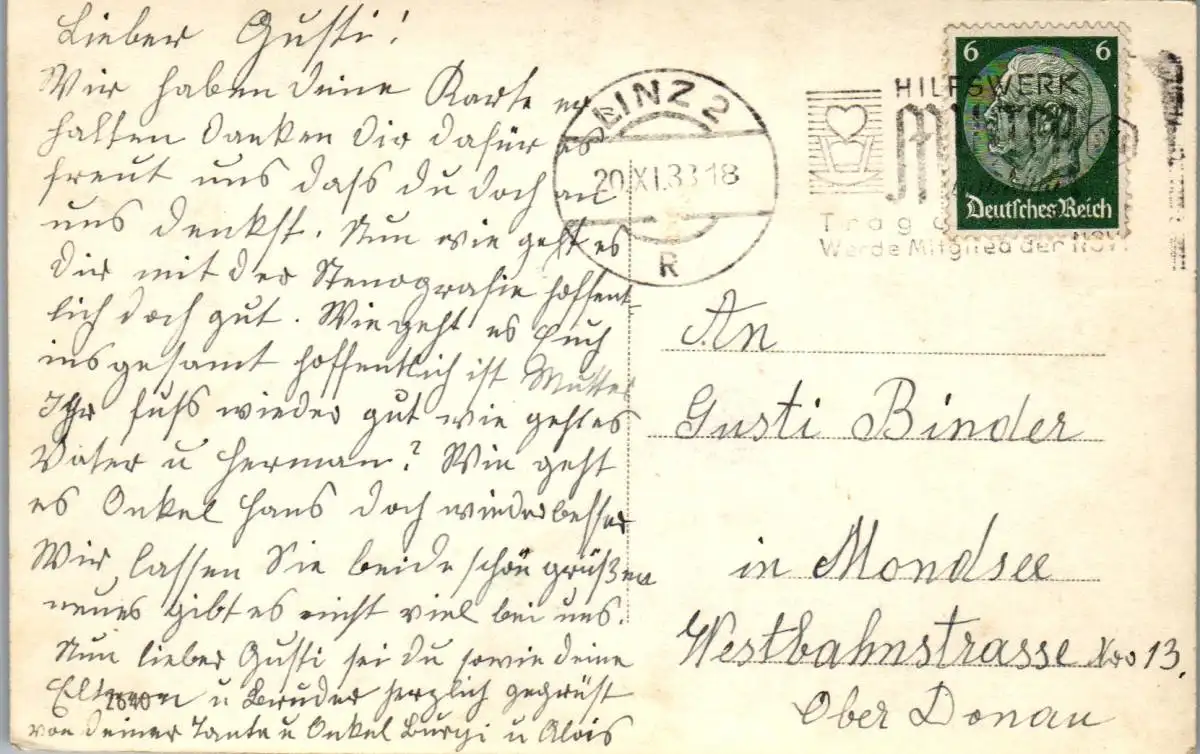 Lieber Gusti!
Wir haben deine Karte er
halten danken dir dafür es
freut uns dass du doch an
uns denkst. Nun wie geht es
dir mit der Stenografie hoffent-
lich doch gut. Wie geht es Euch
insgesamt hoffentlich ist Mutter
Ihr fuss wieder gut wie geht es
Vater u Herman? Wie geht
es Onkel Hans doch wieder besser
Wir lassen Sie beide schön grüßen
neues gibt es nicht viel bei uns.
Nun lieber Gusti sei du sowie deine
Eltern u Bruder herzlich gegrüst
von deiner Tante u Onkel Burgi u Alois
2640
LINZ 2
20.XI.38 18
R
HILFSWERK
MUTTER
Werde Mitglied der NSV!
6 6
Deutsches Reich
An
Gusti Binder
in Mondsee
Westbahnstrasse Nro 13.
Ober Donau